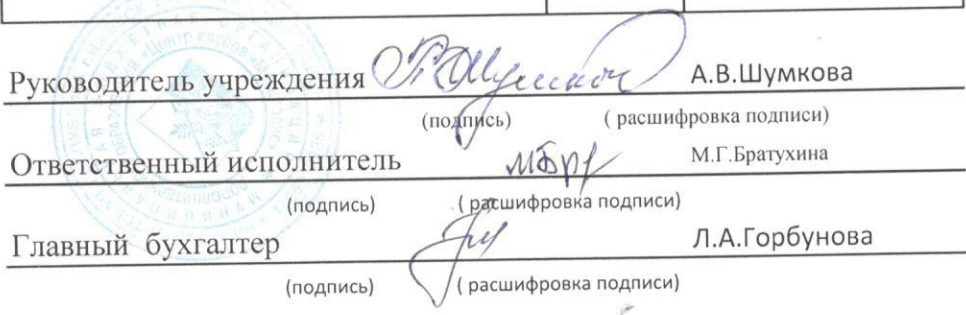 Руководитель учреждения А.В.Шумкова
(подпись) ( расшифровка подписи)
Ответственный исполнитель М.Г.Братухина
(подпись) ( расшифровка подписи)
Главный бухгалтер Л.А.Горбунова
(подпись) ( расшифровка подписи)